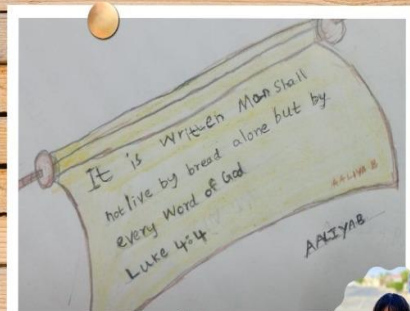 It is written Man Shall
not live by bread alone but by
every Word of God
Luke 4:4
AALIYA B
AALIYAB